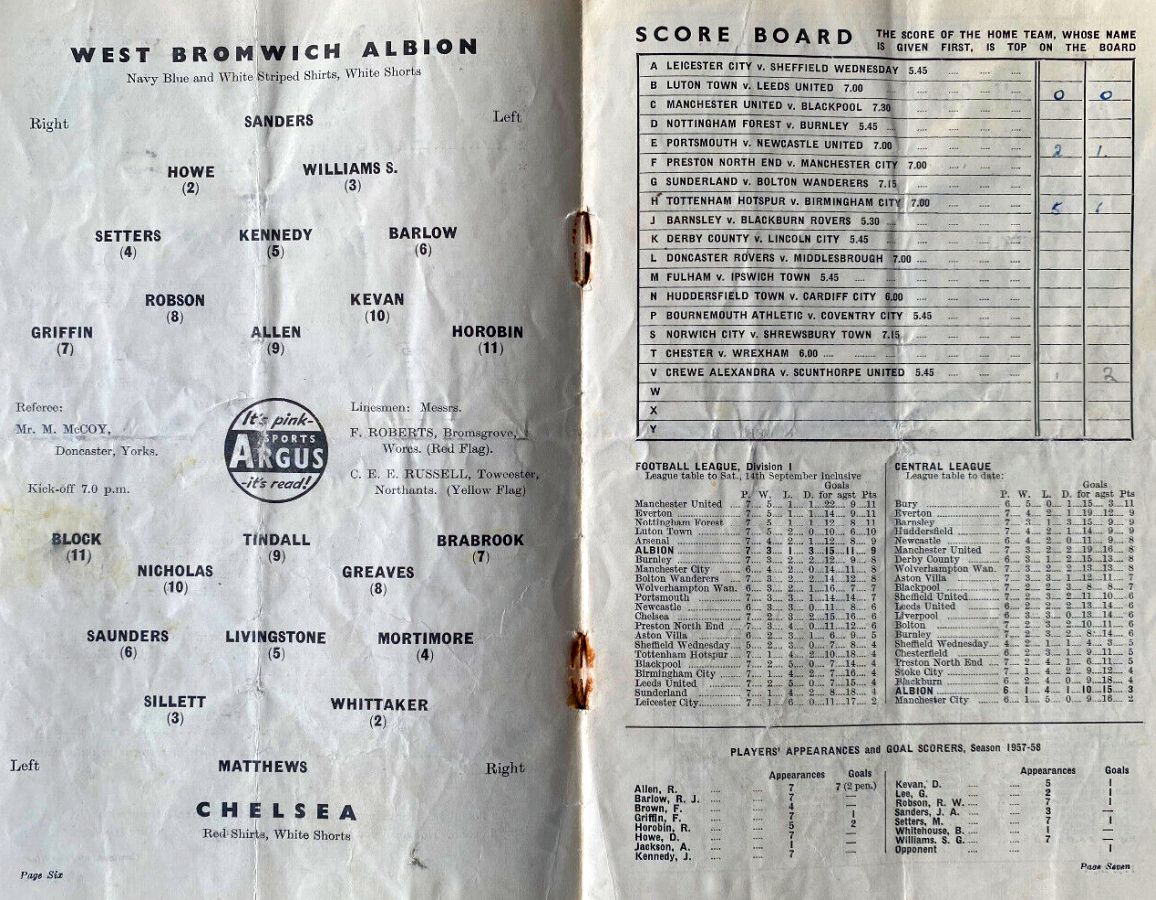 WEST BROMWICH ALBION
Navy Blue and White Striped Shirts, White Shorts
Right
SANDERS
Left
HOWE
(2)
WILLIAMS S.
(3)
SETTERS
(4)
KENNEDY
(5)
BARLOW
(6)
ROBSON
(8)
KEVAN
(10)
GRIFFIN
(7)
ALLEN
(9)
HOROBIN
(11)
Referee:
Mr. M. McCOY,
Doncaster, Yorks.
Kick-off 7.0 p.m.
It's pink-
SPORTS
ARGUS
-it's read!
Linesmen: Messrs.
F. ROBERTS, Bromsgrove,
Worcs. (Red Flag).
C. E. E. RUSSELL, Towcester,
Northants. (Yellow Flag)
BLOCK
(11)
TINDALL
(9)
BRABROOK
(7)
NICHOLAS
(10)
GREAVES
(8)
SAUNDERS
(6)
LIVINGSTONE
(5)
MORTIMORE
(4)
SILLETT
(3)
WHITTAKER
(2)
Left
MATTHEWS
Right
CHELSEA
Red Shirts, White Shorts
Page Six
SCORE BOARD
THE SCORE OF THE HOME TEAM, WHOSE NAME
IS GIVEN FIRST, IS TOP ON THE BOARD
A LEICESTER CITY v. SHEFFIELD WEDNESDAY 5.45
B LUTON TOWN v. LEEDS UNITED 7.00 0 0
C MANCHESTER UNITED v. BLACKPOOL 7.30
D NOTTINGHAM FOREST v. BURNLEY 5.45
E PORTSMOUTH v. NEWCASTLE UNITED 7.00 2 1
F PRESTON NORTH END v. MANCHESTER CITY 7.00
G SUNDERLAND v. BOLTON WANDERERS 7.15
H TOTTENHAM HOTSPUR v. BIRMINGHAM CITY 7.00 5
J BARNSLEY v. BLACKBURN ROVERS 5.30
K DERBY COUNTY v. LINCOLN CITY 5.45
L DONCASTER ROVERS v. MIDDLESBROUGH 7.00
M FULHAM v. IPSWICH TOWN 5.45
N HUDDERSFIELD TOWN v. CARDIFF CITY 6.00
P BOURNEMOUTH ATHLETIC v. COVENTRY CITY 5.45
S NORWICH CITY v. SHREWSBURY TOWN 7.15
T CHESTER v. WREXHAM 6.00
V CREWE ALEXANDRA v. SCUNTHORPE UNITED 5.45
W
X
Y
FOOTBALL LEAGUE, Division I
League table to Sat., 14th September inclusive
Goals
P. W. L. D. for agst Pts
Manchester United 7 5 1 1 22 9 11
Everton 7 5 1 1 14 9 11
Nottingham Forest 7 5 1 1 12 8 11
Luton Town 7 5 2 0 10 6 10
Arsenal 7 4 2 1 12 8 9
ALBION 7 3 1 3 15 11 9
Burnley 7 3 2 2 12 9 8
Manchester City 6 4 2 0 14 11 8
Bolton Wanderers 7 3 2 2 14 12 8
Wolverhampton Wan. 6 3 2 1 16 7 7
Portsmouth 7 3 3 1 14 14 7
Newcastle 6 3 3 0 11 8 6
Chelsea 7 2 3 2 15 16 6
Preston North End 7 3 4 0 11 12 6
Aston Villa 6 2 3 1 6 9 5
Sheffield Wednesday 5 2 3 0 7 8 4
Tottenham Hotspur 7 1 4 2 10 18 4
Blackpool 7 2 5 0 7 14 4
Birmingham City 7 1 4 2 7 16 4
Leeds United 7 2 5 0 7 15 4
Sunderland 7 1 4 2 8 18 4
Leicester City 7 1 6 0 11 17 2
CENTRAL LEAGUE
League table to date:
Goals
P. W. L. D. for agst Pts
Bury 6 5 0 1 15 3 11
Everton 7 4 2 1 19 12 9
Barnsley 7 3 1 3 15 9 9
Huddersfield 7 4 2 1 14 9 9
Newcastle 6 4 2 0 11 9 8
Manchester United 7 3 2 2 19 16 8
Derby County 6 3 1 2 15 13 8
Wolverhampton Wan. 7 3 2 2 13 13 8
Aston Villa 7 3 3 1 12 11 7
Blackpool 7 2 2 3 8 8 7
Sheffield United 7 2 3 2 11 10 6
Leeds United 6 2 2 2 13 14 6
Liverpool 6 3 3 0 13 14 6
Bolton 7 2 3 2 10 11 6
Burnley 7 2 3 2 8 14 6
Sheffield Wednesday 4 2 1 1 4 3 5
Chesterfield 6 2 3 1 9 11 5
Preston North End 7 2 4 1 6 11 5
Stoke City 7 1 4 2 9 12 4
Blackburn 6 2 4 0 9 18 4
ALBION 6 1 4 1 10 15 3
Manchester City 6 1 5 0 9 16 2
PLAYERS' APPEARANCES and GOAL SCORERS, Season 1957-58
Appearances Goals
Allen, R. 7 7 (2 pen.)
Barlow, R. J. 7 —
Brown, F. 4 —
Griffin, F. 7 1
Horobin, R. 5 2
Howe, D. 7 —
Jackson, A. 1 —
Kennedy, J. 7 —
Appearances Goals
Kevan, D. 5 1
Lee, G. 2 1
Robson, R. W. 7 1
Sanders, J. A. 3 —
Setters, M. 7 1
Whitehouse, B. 1 —
Williams, S. G. 7 —
Opponent 1
Page Seven